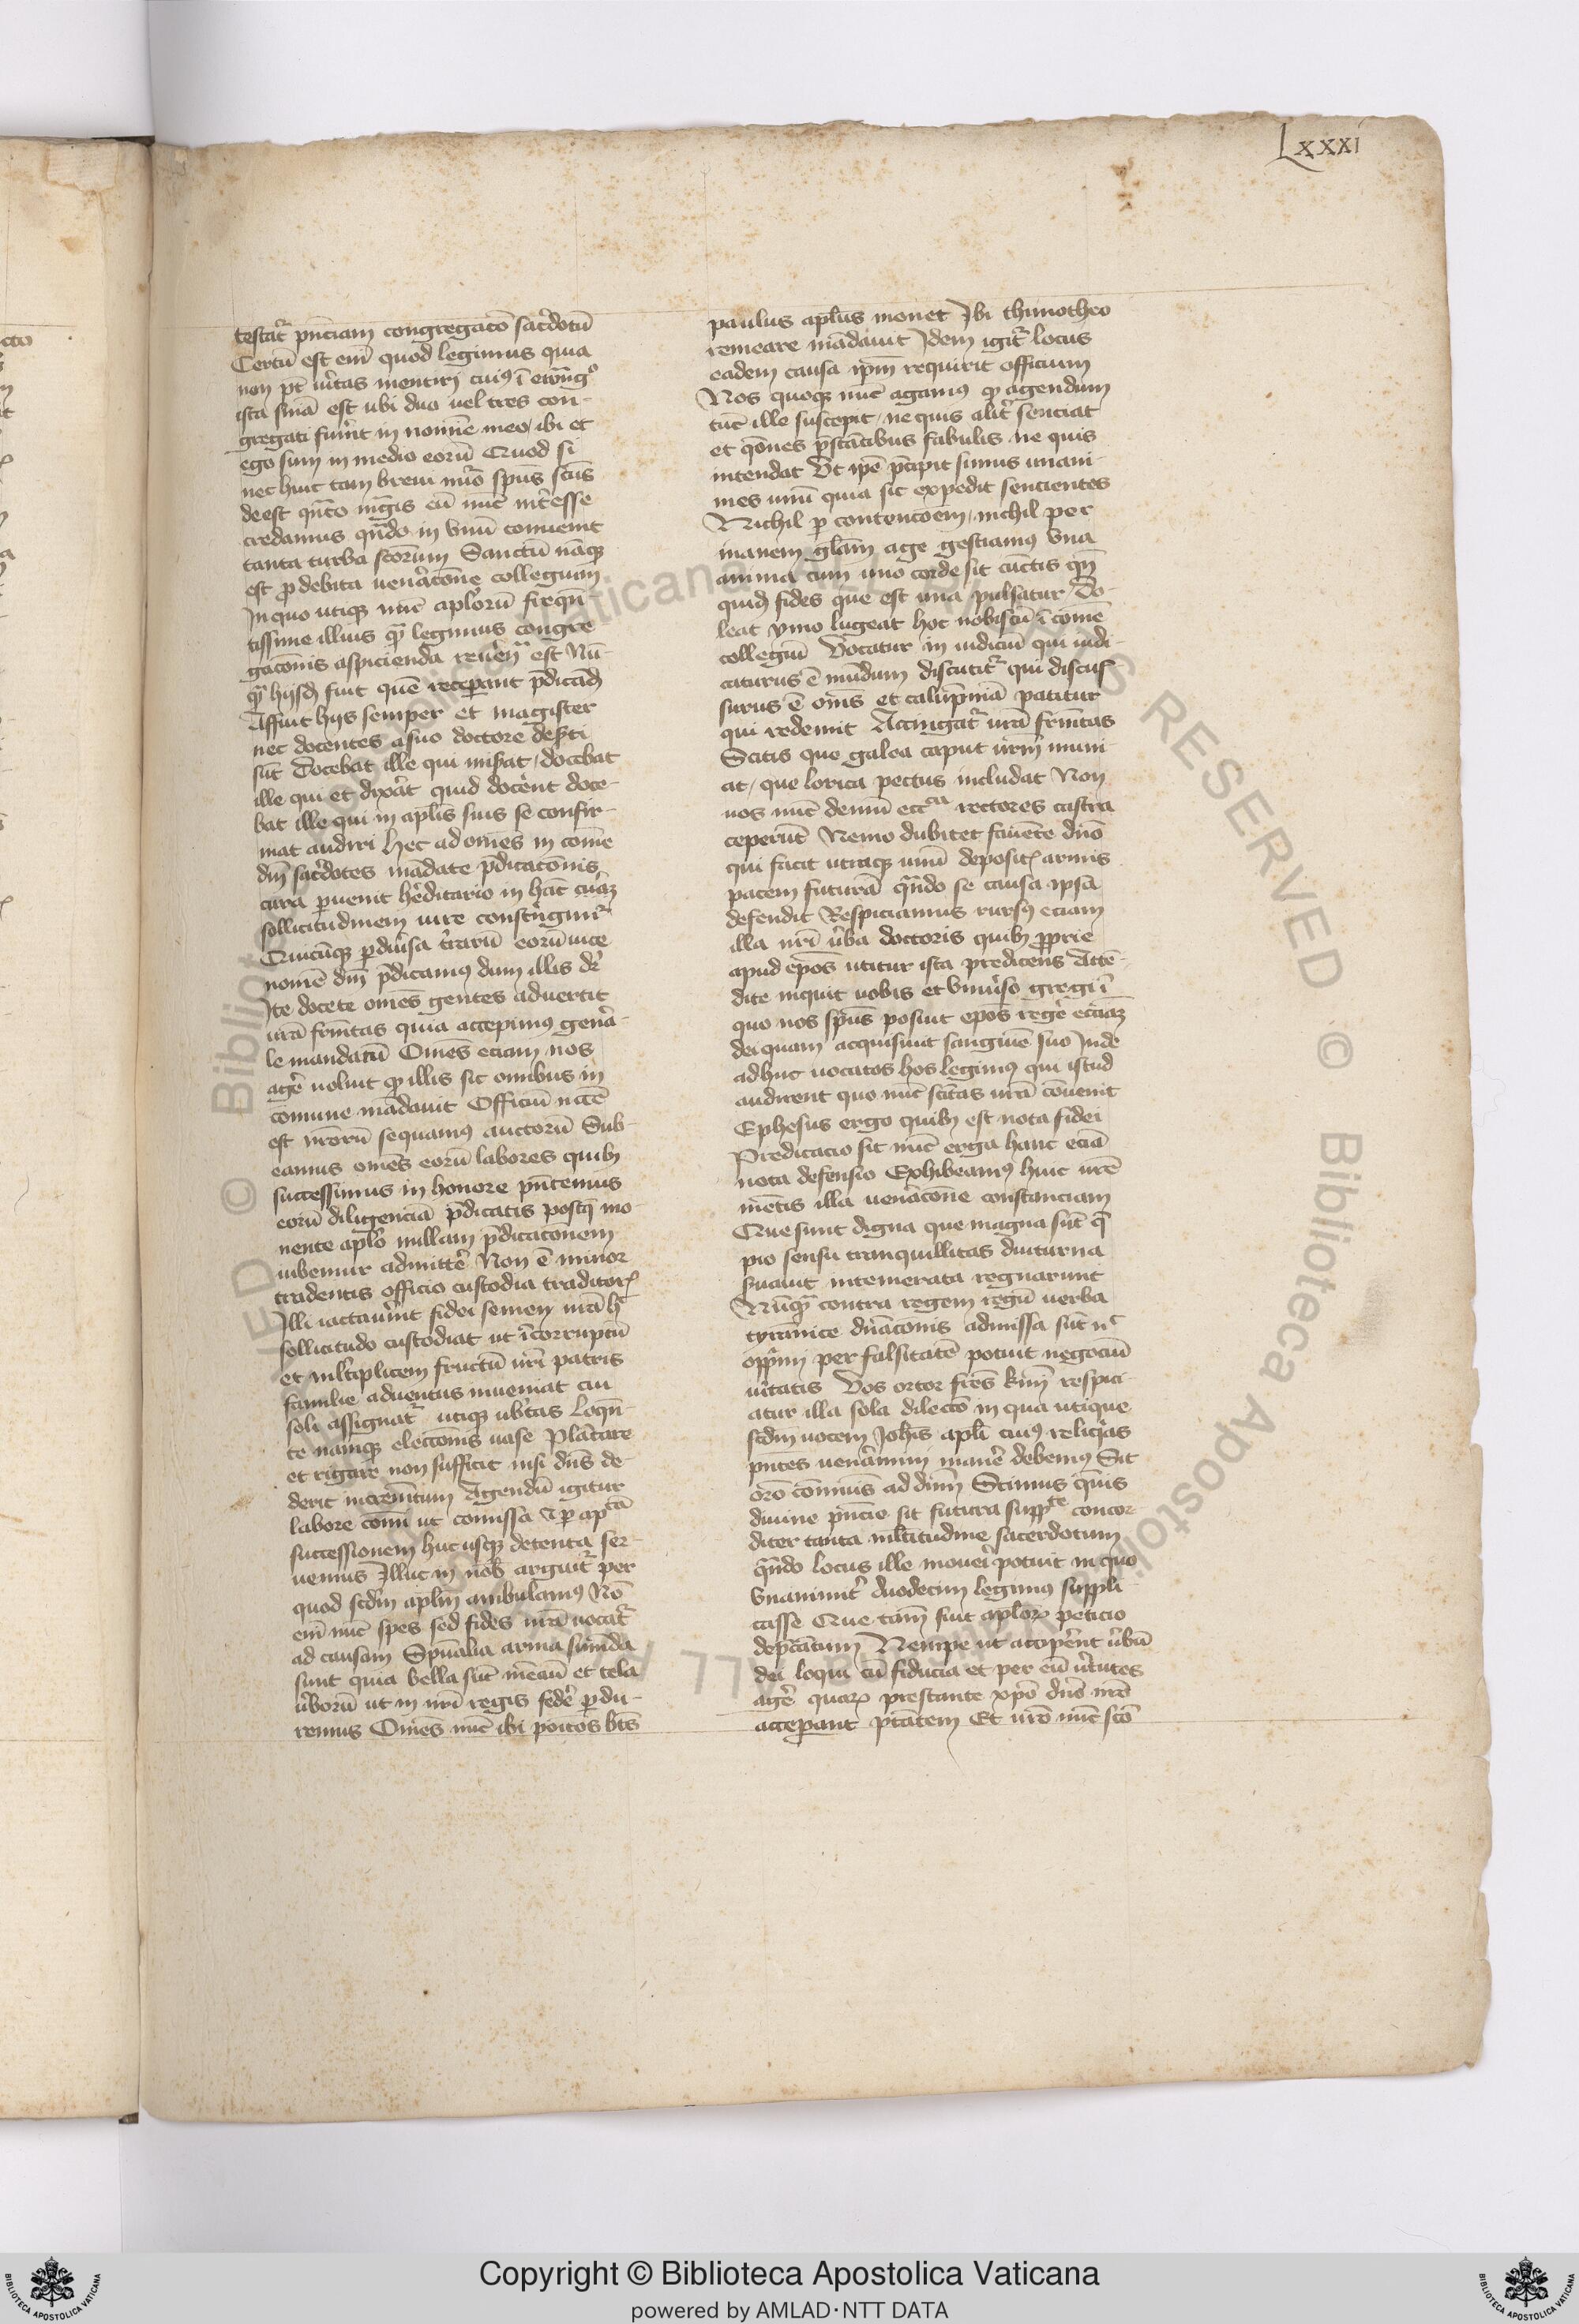 Lxxxi
testat᷑ pn̄ciam congregaco᷑ sac᷑dotū
Certū est em̄ quod legimus quia
non pt̄ u᷑itas mentiri cui9 ī ewāg͛o
ista sn̄ia est ubi duo uel tres con-
gregati fuīnt in noīe meo ibi et
ego sum in medio eorū Quod si
nec huic tam breui nu᷑o spūs sctūs
deest qn̄to mgis eū nūc int᷑esse
credamus qn̄do in vnū conuenit
tanta turba sctorum Sanctū nāq3
est p̱ debita uen᷑acōne collegium
In quo utiq3 nūc aplorū freqn̄-
tissime illius qᵃ legimus congre
gacōnis aspicienda reuēnᵃ est Nū-
qᵃ hijsd3 fuit quē receperant p̄dicād3
Affuit hijs semper et magister
nec docentes a suo doctore desti
sūt Docebat ille qui misāt docebat
ille qui et dix᷑at quid doc᷑ent doce-
bat ille qui in aplīs suis se confir-
mat audiri Hec ad om̄es in comē
dn̄i sac᷑dotes mādate p̄dicacōnis
cura p̱uenit h᷑editario in hāc cu᷑a3
sollicitudinem iure constringim᷑
Quicūq3 p̱ diu᷑sa t᷑rarū eorū uice
nomē dn̄i p̄dicam9 dum illis d᷑r
Ite docete om̄es gentes aduertit
ur̄a frn̄itas quia accepim9 gen᷑a-
le mandatū Om̄es eciam nos
ag᷑e uoluit q̱ illis sic om̄ibus in
comune mādauit Officiū nccē
est nr̄orū sequam9 auctorū Sub-
eamus om̄es eorū labores quib3
successimus in honore pn̄temus
eorū diligenciā p̄dicatis postq̄ mo-
nente aplo nullam p̄dicaconem
iubemur admitt᷑e Non ē minor
tradentis officio custodia traditor᷑
Illi iactau᷑int fidei semen nr̄a h͛
sollicitudo custodiat ut īcorruptū
et ml̄tiplicem fructū nr̄i patris
familie aduentus inueniat cui
soli assignat᷑ utiq3 ub᷑tas Loqn̄-
te namq3 eleccōnis uase Plātare
et rigare non sufficit nisi dn̄s de-
derit incremītum Agendū igitur
labore cōmi ut comissa ⁊ p̱ apᵗᵃ
successionem huc usq3 detenta ser-
uemus Illuc in nob᷑ arguit᷑ per
quod scdm̄ aplm̄ ambulam9 Nō
em̄ nūc spes sed fides nr̄a uocat᷑
ad causam Spūalia arma sumēda
sunt quia bella sūt mēciū et tela
u᷑borū ut in nr̄i regis fed᷑e p̱du-
remus Om̄es nūc ibi poitos bt̄s
paulus aplūs monet Ibi thimotheo
remeare mādauit Idem igit᷑ locus
eadem causa ip̄m requirit officium
Nos quoq3 nūc agam9 q̱ agendum
tūc ille suscepit ne quis alit᷑ senciat
et qōnes p̄stātibus fabulis ne quis
intendat Vt ip̄e p̄cipit simus unani-
mes unū quia sic expedit sencientes
Nichil p̱ contencōem nichil per
inanem glām age gestiam9 vna
anima cum uno corde sit cūctis qn̄
quid3 fides que est una pulsatur Do-
leat ymo lugeat hoc nobiscū ī comē
collegiū Vocatur in iudiciū qui iudi-
caturus ē mūdum discutit᷑ qui discus-
surus ē om̄s et calūpniā patitur
qui redemit Accingat᷑ ur̄a frn̄itas
Scitis que galea caput ur̄m muni-
at que lorica pectus includat Non
uos nūc demū eccᶜⁱᵃ rectores castra
ceperūt Nemo dubitet fauēte dn̄o
qui facit utraq3 unū deposit᷑ armis
pacem futurā qn̄do se causa ipsa
defendit Respiciamus rurs9 eciam
illa nr̄i u᷑ba doctoris quib3 p̱prie
apud epōs utitur ista predicens Attē-
dite inquit uobis et vniu᷑so gregi ī
quo nos spūs posuit epōs reg᷑e ecciā3
dei quam acquisiuit sanguīe suo Inde
adhuc uocatos hos legim9 qui istud
audirent quo nūc sctītas ur̄a cōuenit
Ephesus ergo quib3 est nota fidei
Predicacio sit nūc erga hanc eciā
nota defensio Exhibeam9 huic ur̄e
mētis illa uen᷑acōne constanciam
Que sunt digna que magna sūt q̄
pio sensu tranquillitas diuturna
s᷑uauit intemerata regnarunt
Nūqᵃ contra regem regū uerba
tyrānice dn̄acōnis admissa sūt n͛c
opp᷑mi per falsitatē potuit negociū
u᷑itatis Vos ortor fr̄es kmī respici-
atur illa sola dilecco᷑ in qua utique
scdm̄ uocem Joh̄is aplī cui9 reliq᷑as
pn̄tes uen᷑amini man᷑e debem9 Sit
orō cōmunis ad dn̄m Scimus qn̄is
diuine pn̄cie sit futura suppᵗᵉ concor-
diter tanta ml̄titudine sacerdotum
qn̄do locus ille moueri potuit in quo
vnanimit᷑ duodecim legimus suppli-
casse Que tam̄ fuit aplor᷑ peticio
dep᷑cātum Nempe ut accip᷑ent u᷑bū
dei loqui cū fiducia et per eū u᷑tutes
ag᷑e quar᷑ prestante xp̄o dn̄o nr̄o
acceperant ptātem Et ur̄o nūc scō
Copyright © Biblioteca Apostolica Vaticana
powered by AMLAD·NTT DATA